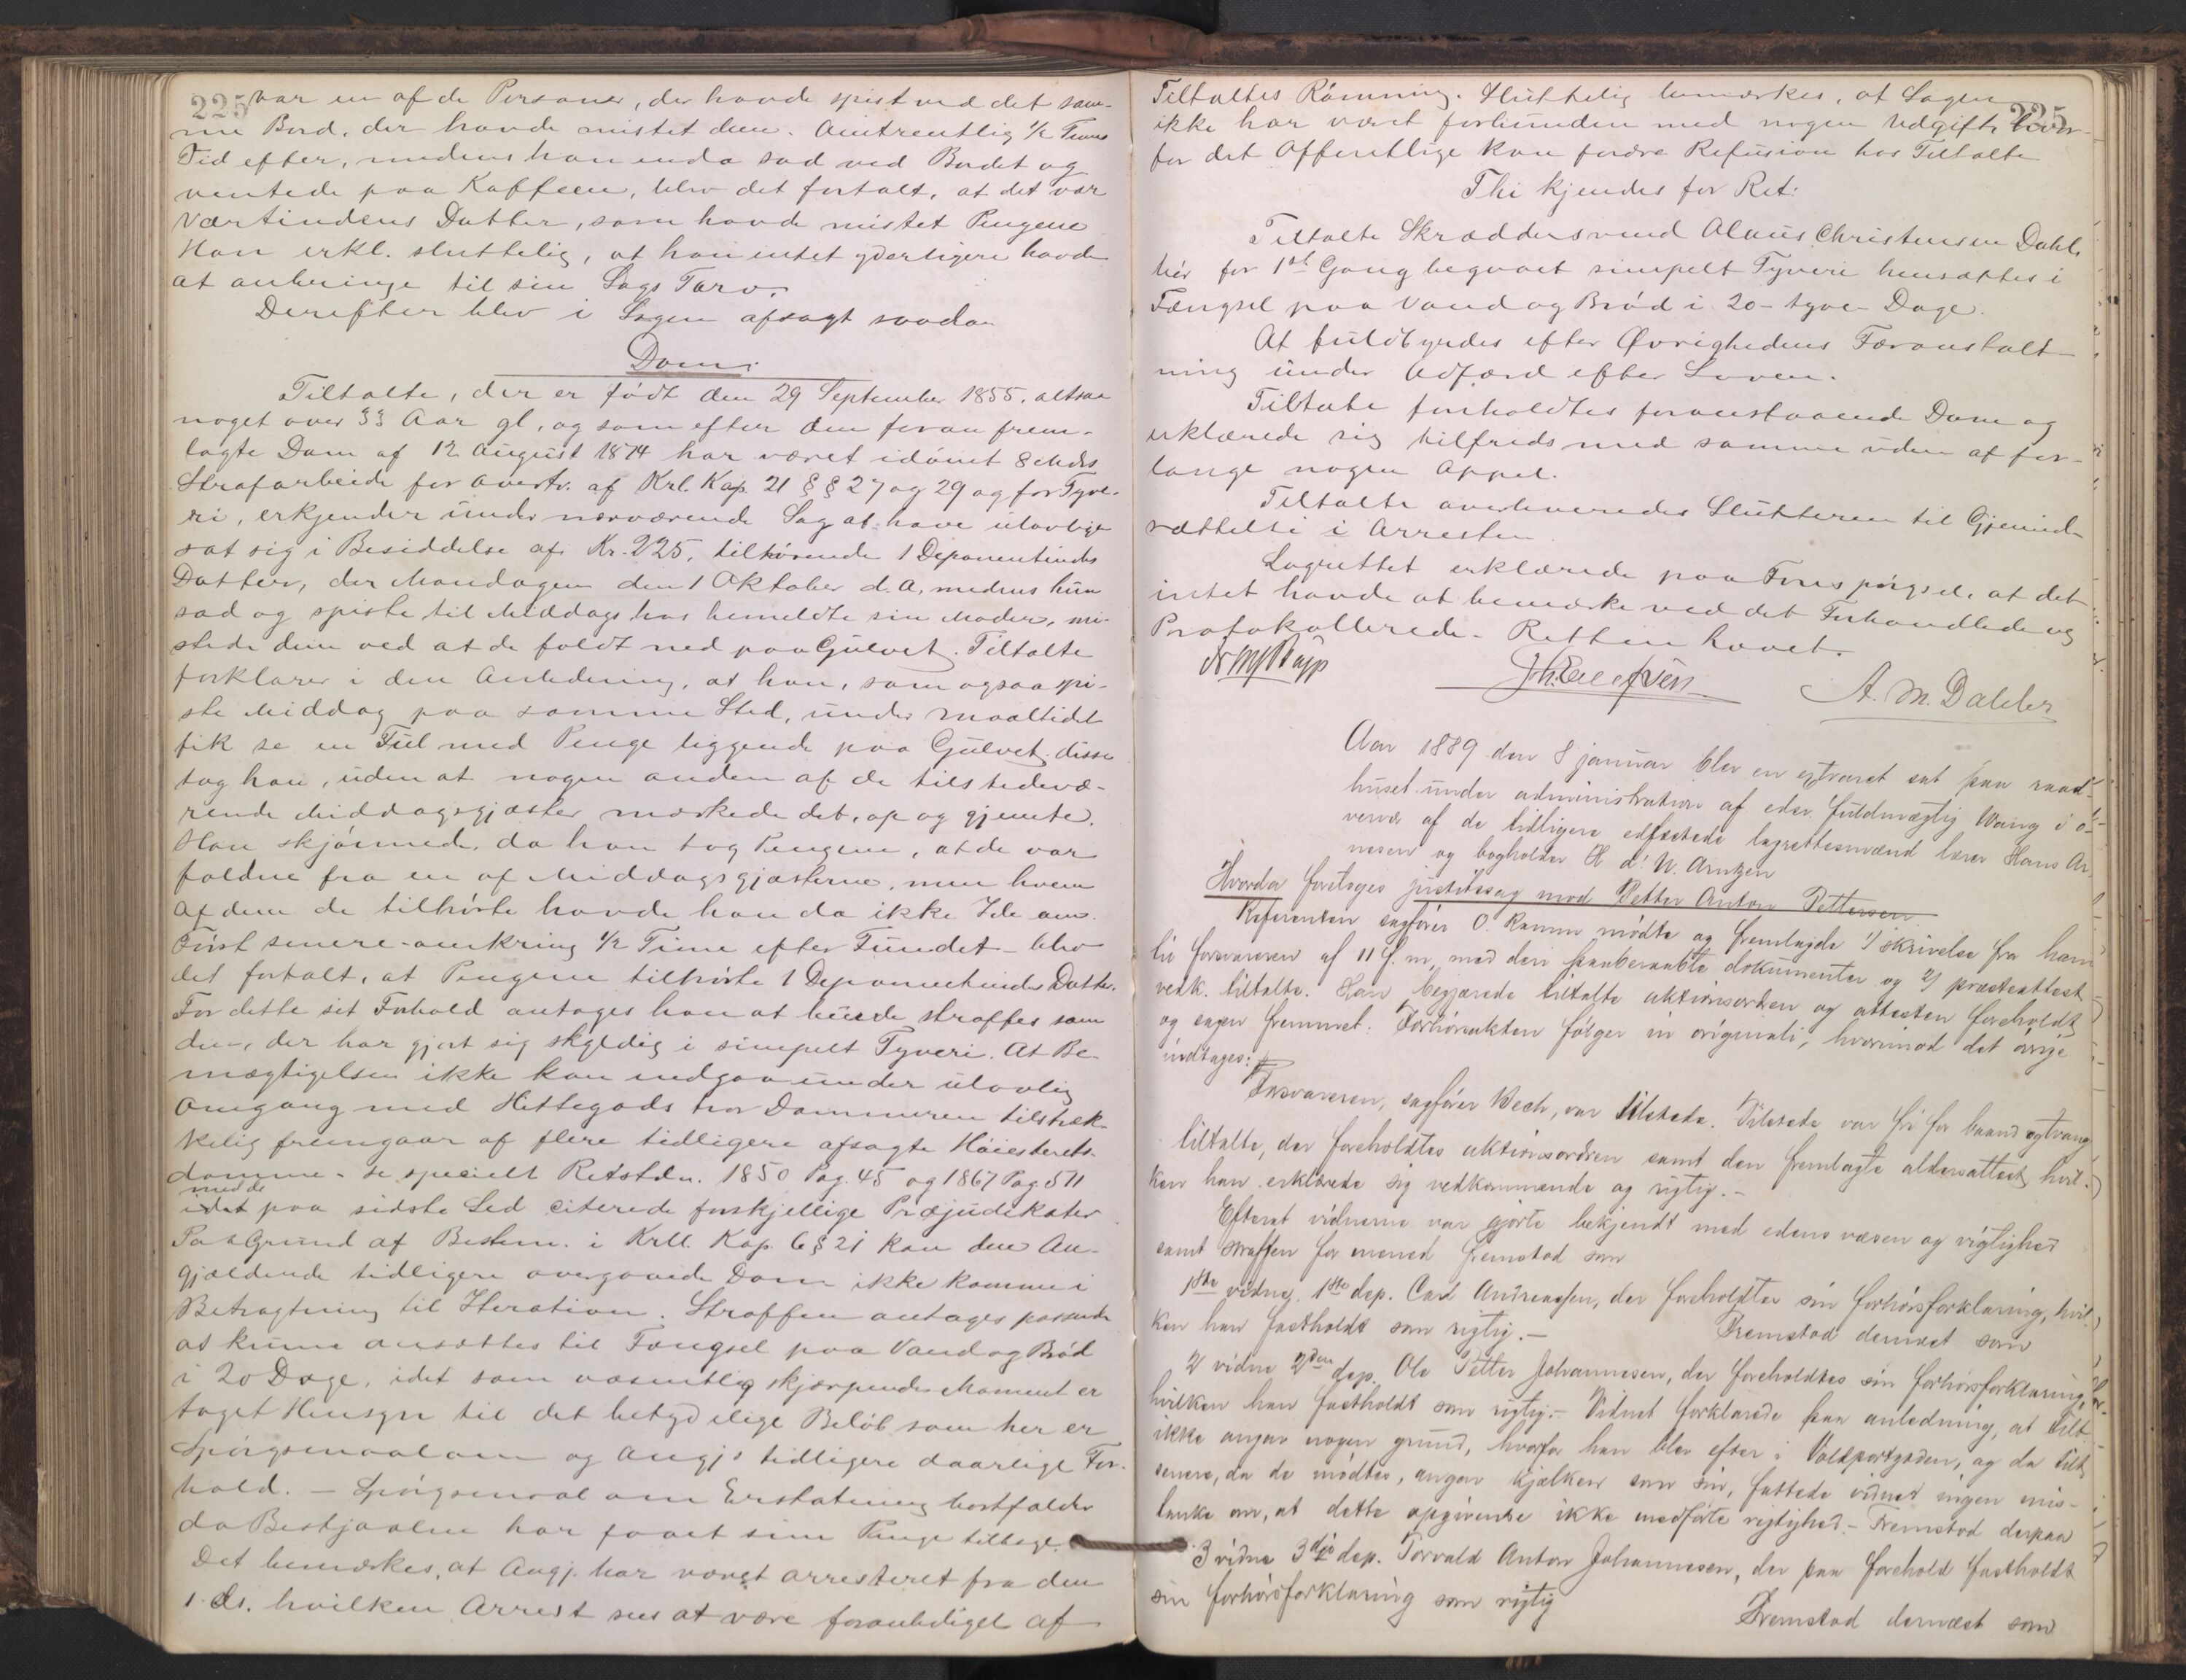 225
var en af de Personer, der havde spist ved det sam-
me Bord, der havde mistet dem. Omtrentlig 1/2 Times
Tid efter, medens han enda sad ved Bordet og
ventede paa Kaffeen, blev det fortalt, at det var
Værtindens Datter, som havde mistet Pengene
Han erkl. sluttelig, at han intet yderligere havde
at anbringe til sin Sags Tarv.
Derefter blev i Sagen afsagt saadan
Dom:
Tiltalte, der er født den 29 September 1855, altsaa
noget over 33 Aar gl., og som efter den foran frem-
lagte Dom af 12 August 1874 har været idømt 8 Mdrs
Strafarbeide for Overtr. af Krl. Kap. 21 § § 27 og 29 og for Tyve-
ri, erkjender under nærværende Sag at have ulovlige
sat sig i Besiddelse af Kr. 225, tilhørende 1 Deponentindes
Datter, der Mandagen den 1 Oktober d. A, medens hun
sad og spiste til Middags hos bemeldte sin Moder, mi-
stede dem ved at de faldt ned paa Gulvet. Tiltalte
forklarer i den Anledning, at han, som ogsaa spi-
ste Middag paa samme Sted, under Maaltidet
fik se en Tul med Penge liggende paa Gulvet, disse
tog han, uden at nogen anden af de tilstedevæ-
rende Middagsgjæster mærkede det, op og gjemte.
Han skjønnede, da han tog Pengene, at de var
faldne fra en af Middagsgjæsterne, men hvem
af dem de tilhørte havde han da ikke Ide om.
Først senere - omkring 1/2 Time efter Fundet - blev
det fortalt, at Pengene tilhørte 1 Deponentindes Datter.
For dette sit Forhold antages han at burde straffes som
den, der har gjort sig skyldig i simpelt Tyveri. At Be-
mægtigelsen ikke kan indgaa under ulovlig
Omgang med Hittegods tror Dommeren tilstræk-
kelig fremgaar af flere tidligere afsagte Høiesterets-
domme - se specielt Retstdn. 1850 Pag. 45 og 1867 Pag 511
med de
paa sidste Sted citerede forskjellige Præjudikater
Paa Grund af Bestem. i Krll. Kap. 6 § 21 kan den An-
gjældende tidligere overgaaede Dom ikke komme i
Betragtning til Iteration. Straffen antages passende
at kunne ansættes til Fængsel paa Vand og Brød
i 20 Dage, idet som væsentlig skjærpende Moment er
taget Hensyn til det betydelige Beløb som her er
Spørgsmaal om og Angjs tidligere daarlige For-
hold. - Spørgsmaal om Erstatning bortfalder
da Bestjaalne har faaet sine Penge tilbage.
Det bemærkes, at Angj. har været arresteret fra den
1 ds. hvilken Arrest sees at være foranlediget af
225
Tiltaltes Rømning. Sluttelig bemærkes, at Sagen
ikke har været forbunden med nogen Udgift hvor-
for det Offentlige kan fordre Refusion hos Tiltalte
Thi kjendes for Ret:
Tiltalte Skræddersvend Olaus Christensen Dahl,
bør for 1ste Gang begaaet simpelt Tyveri hensættes i
Fængsel paa Vand og Brød i 20 - tyve - Dage.
At fuldbyrdes efter Øvrighedens Foranstalt-
ning under Adfærd efter Loven.
Tiltalte forholdtes foranstaaende Dom og
erklærede sig tilfreds med samme uden at for-
lange nogen Appel.
Tiltalte overleveredes Slutteren til Gjenind-
sættelse i Arresten
Lagrettet erklærede paa Forespørgsel, at det
intet havde at bemærke ved det Forhandlede og
Protokollerede. Retten hævet.
A. M. Dahler
Aar 1889 den 8 januar blev en extraret sat paa raad-
huset under administration af eder. fuldmægtig Wang i o-
vervær af de tidligere edfæstede lagrettesmænd lærer Hans Ar-
nesen og bogholder H d' N. Arntzen
Hvorda foretoges justitssag mod Petter Anton Pettersen
Referenten sagfører O. Ramm mødte og fremlagde 1) skrivelse fra ham
til forsvareren af 11 f. m. med den paaberaabte dokumenter og 2) præsteattest
vedk. tiltalte. Han begjærede tiltalte aktionsorden og attesten foreholdt
og sagen fremmet. Forhørsakten følger in originali, hvorimod det øvrige
indtages:
Forsvareren, sagfører Bech, var tilstede. Tilstede var fri for baand og tvang
tiltalte, der foreholdtes aktionsordren samt den fremlagte aldersattest, hvil-
ken han erklærede sig vedkommende og rigtig.-
Efterat vidnerne var gjorte bekjendt med edens væsen og vigtighed
samt straffen for mened fremstod som
1ste vidne 1ste dep. Carl Andreassen, der foreholdtes sin forhørsforklaring, hvil-
ken han fastholdt som rigtig.- Fremstod dernæst som
2 vidne 2den dep. Ole Petter Johannesen, der foreholdtes sin forhørsforklaring,
hvilken han fastholdt som rigtig.- Vidnet forklarede paa anledning, at Tilt
ikke angav nogen grund, hvorfor han blev efter i Voldportgaden, og da Tilt
senere, da de mødtes, angav kjælken som sin, fattede vidnet ingen mis-
tanke om, at dette opgivende ikke medførte rigtighed.- Fremstod derpaa
3 vidne 3die dep. Torvald Anton Johannesen, der paa forehold fastholdt
sin forhørsforklaring som rigtig Fremstod dernæst som